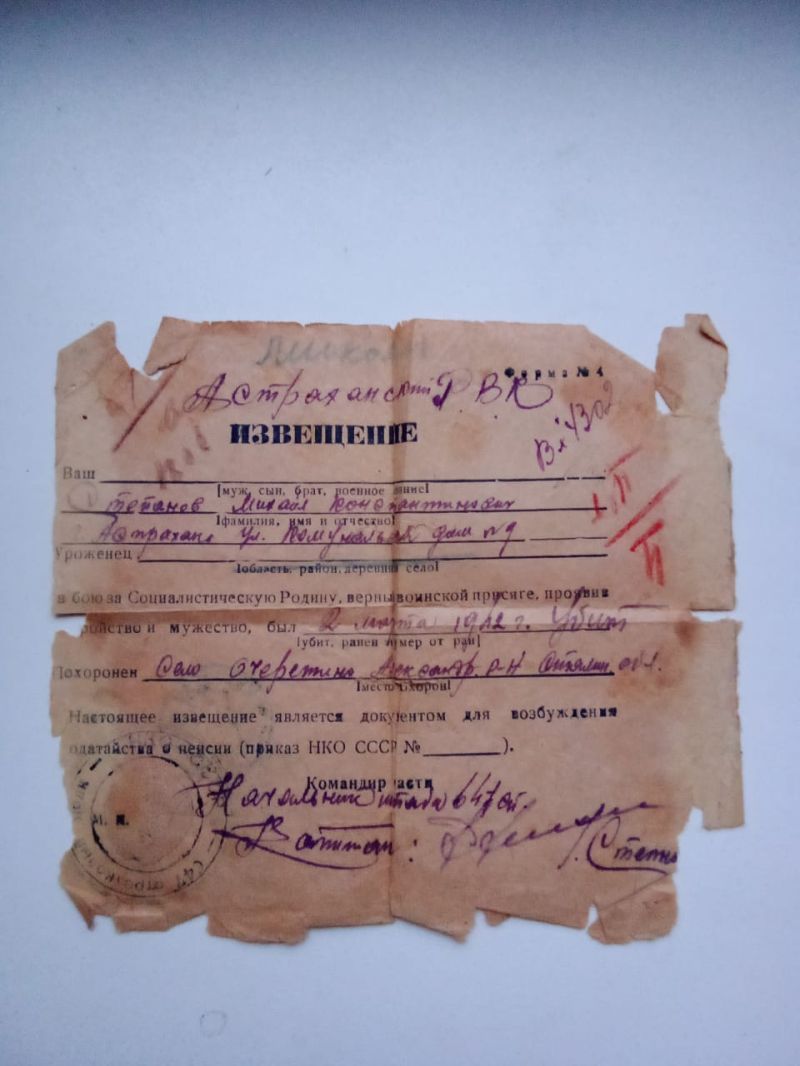 Форма № 4
Астраханский РВК
ИЗВЕЩЕНИЕ
Ваш
[муж, сын, брат, военное
Степанов Михаил Константинович
[фамилия, имя и отчество]
Астрахань ул. дом № 9
Уроженец
[область, район, деревня село]
в бою за Социалистическую Родину, верны воинской присяге, проявив
мужество, был 2 марта 1942 г. Убит
[убит, ранен
Похоронен Село Очеретино р-н Сталин. обл.
Настоящее извещение является документом для возбуждения
одатайства о пенсии (приказ НКО СССР № ).
Командир части
Начальник штаба 647
М. П.
Капитан: